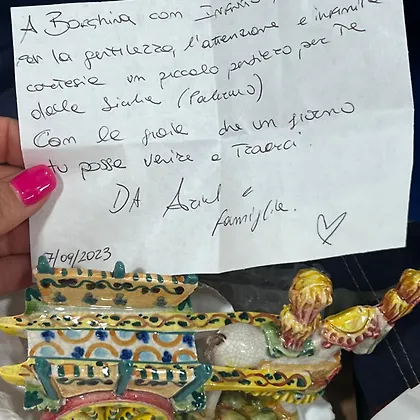 A Borghina con INFINITA
per la gentilezza, l'attenzione e infinita
cortesia un piccolo pensiero per Te
dalla Sicilia (Palermo)
Con la gioia che un giorno
tu possa venire a Trovarci.
DA Ariel e
famiglia.
7/09/2023